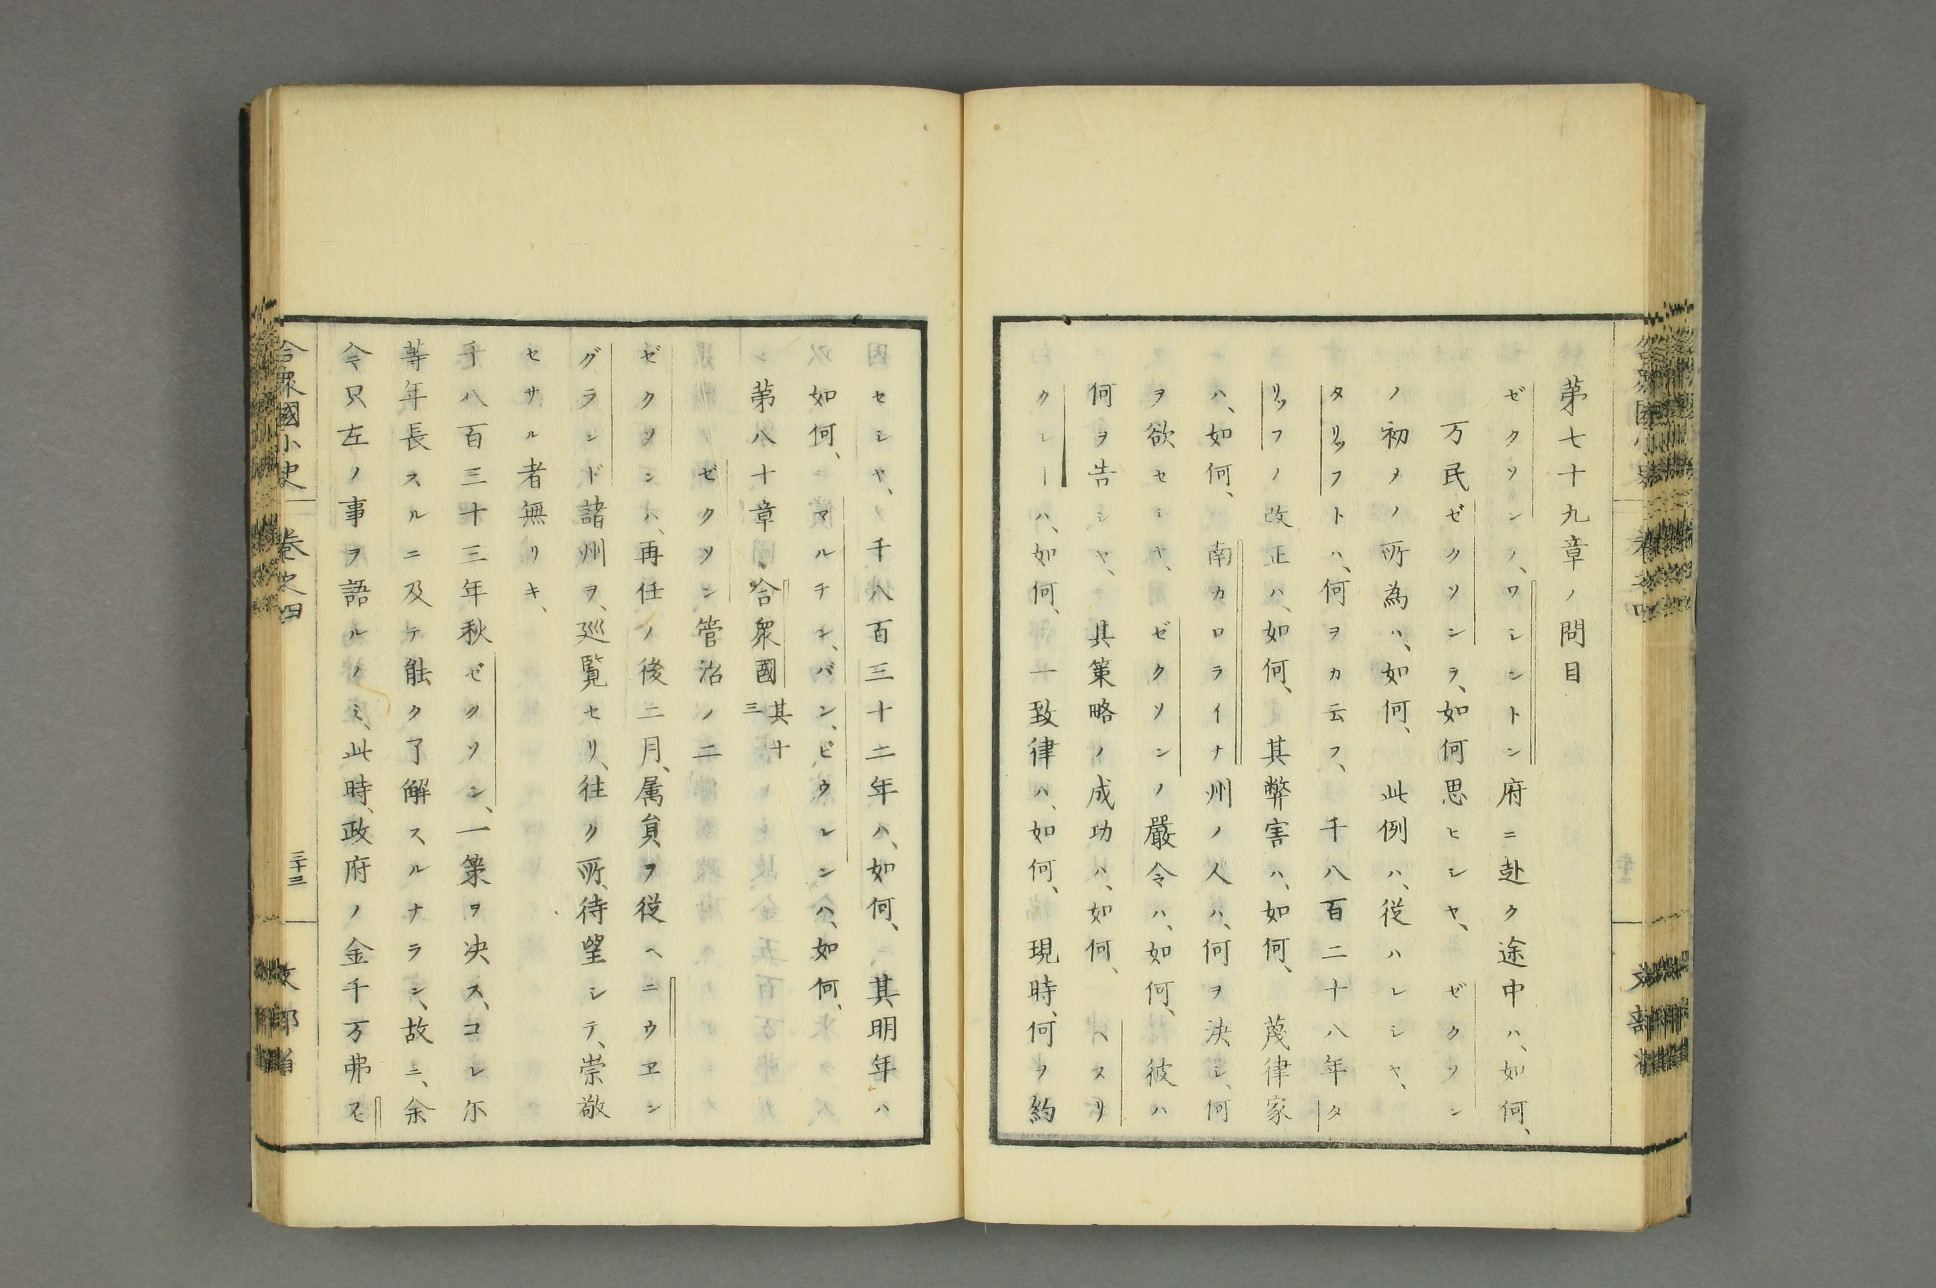 第七十九章ノ問目
ゼクソンノ、ワシントン府ニ赴ク途中ハ、如何、
万民ゼクソンヲ、如何思ヒシヤ、ゼクソン
ノ初メノ所為ハ、如何、此例ハ、従ハレシヤ、
タリッフトハ、何ヲカ云フ、千八百二十八年タ
リッフノ改正ハ、如何、其弊害ハ、如何、蔑律家
ハ、如何、南カロライナ州ノ人ハ、何ヲ決シ、何
ヲ欲セシヤ、ゼクソンノ嚴令ハ、如何、彼ハ
何ヲ告シヤ、其策略ノ成功ハ、如何、ヘヌリ
クレーハ、如何、一致律ハ、如何、現時、何ヲ約
セシヤ、千八百三十二年ハ、如何、其明年ハ
如何、マルチン、バン、ビウレンハ、如何、
第八十章 合衆國 其十三
ゼクソン管治ノ二
ゼクソンハ、再任ノ後二月、属員ヲ従ヘニウヱン
グランド諸州ヲ、巡覧セリ、往ク所、待望シテ、崇敬
セサル者無リキ、
千八百三十三年秋ゼクソン、一策ヲ决ス、コレ尓
等年長スルニ及テ能ク了解スルナラン、故ニ、余
今只左ノ事ヲ語ルノミ、此時、政府ノ金千万弗
合衆國小史 巻之四 三十三 文部省